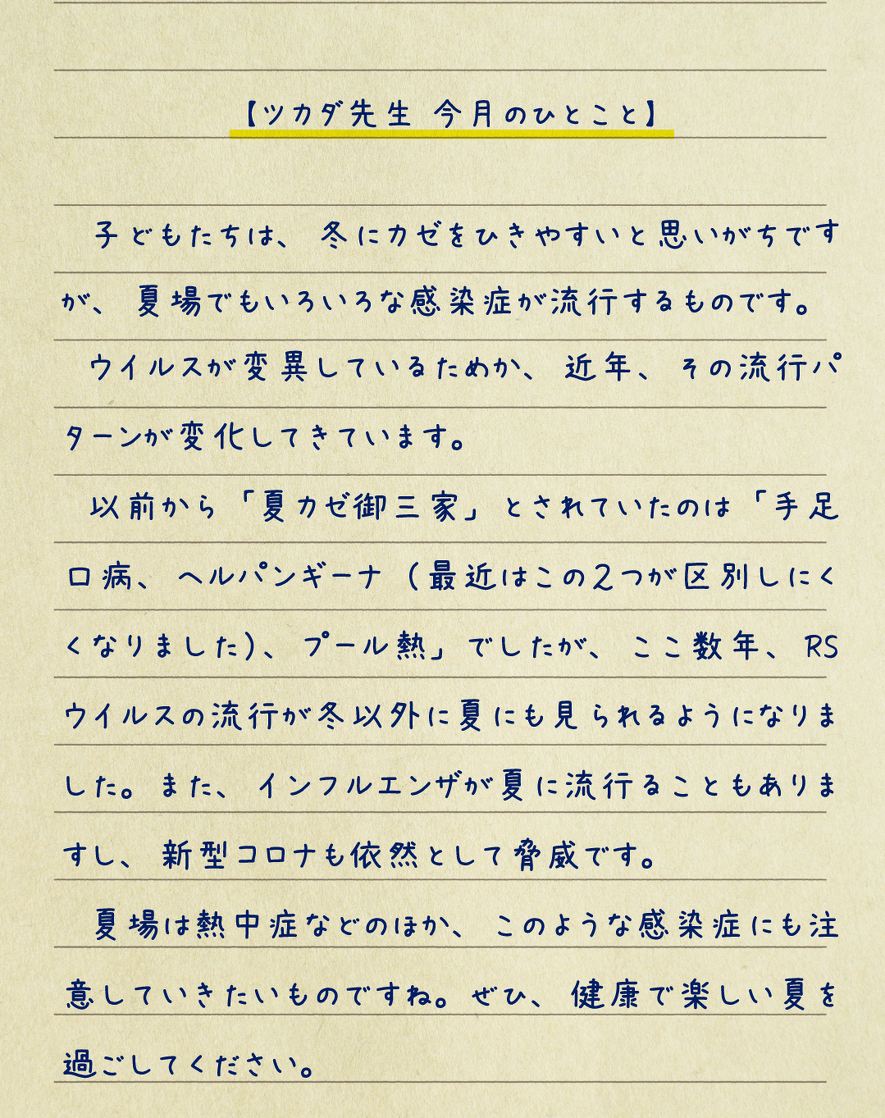 【ツカダ先生 今月のひとこと】
子どもたちは、冬にカゼをひきやすいと思いがちです
が、夏場でもいろいろな感染症が流行するものです。
ウイルスが変異しているためか、近年、その流行パ
ターンが変化してきています。
以前から「夏カゼ御三家」とされていたのは「手足
口病、ヘルパンギーナ（最近はこの2つが区別しにく
くなりました）、プール熱」でしたが、ここ数年、RS
ウイルスの流行が冬以外に夏にも見られるようになりま
した。また、インフルエンザが夏に流行ることもありま
すし、新型コロナも依然として脅威です。
夏場は熱中症などのほか、このような感染症にも注
意していきたいものですね。ぜひ、健康で楽しい夏を
過ごしてください。